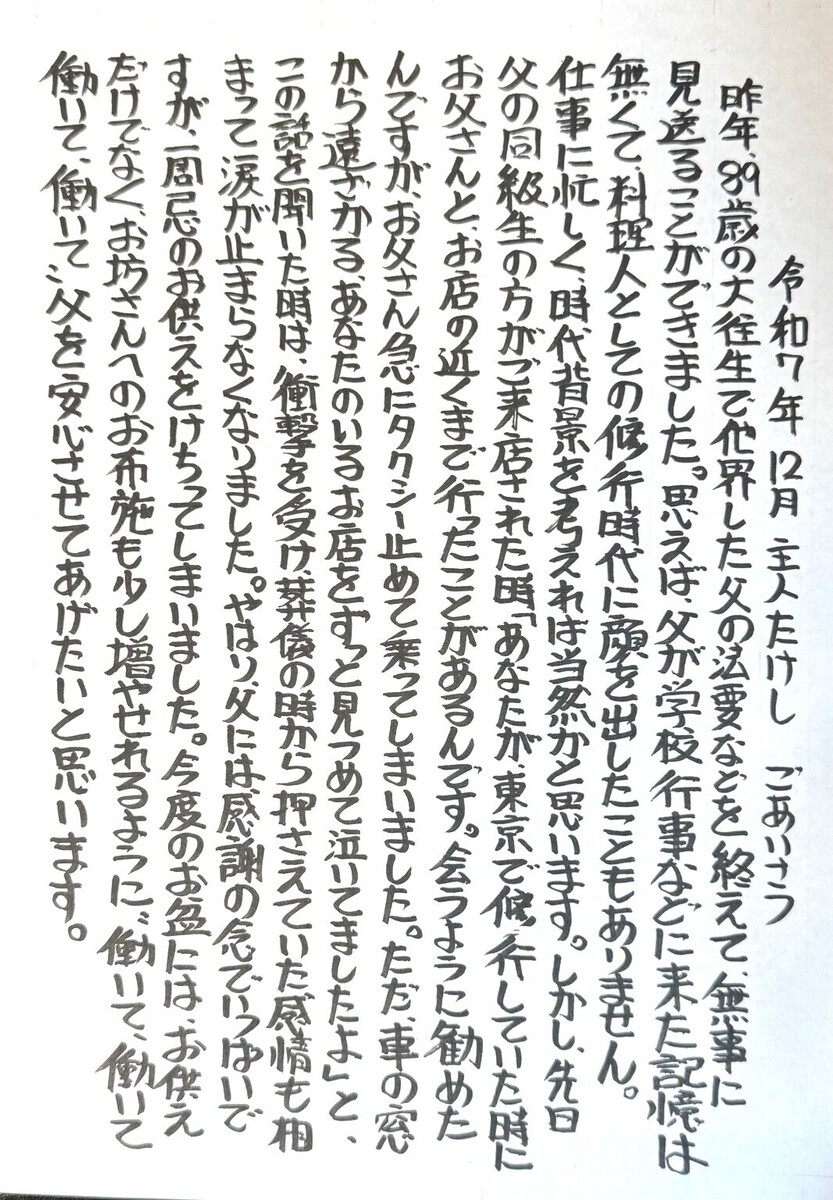 令和7年 12月 主人たけし ごあいさつ
昨年、89歳の大往生で他界した父の法要などを終えて、無事に
見送ることができました。思えば、父が学校行事などに来た記憶は
無くて、料理人としての修行時代に顔を出したこともありません。
仕事に忙しく、時代背景を考えれば当然かと思います。しかし、先日
父の同級生の方がご来店された時「あなたが、東京で修行していた時に
お父さんと、お店の近くまで行ったことがあるんです。会うように勧めた
んですが、お父さん急にタクシー止めて乗ってしまいました。ただ、車の窓
から遠ざかる、あなたのいるお店をずっと見つめて泣いてましたよ」と、
この話を聞いた時は、衝撃を受け葬儀の時から押さえていた感情も相
まって涙が止まらなくなりました。やはり、父には感謝の念でいっぱいで
すが、一周忌のお供えをけちってしまいました。今度のお盆には、お供え
だけでなく、お坊さんへのお布施も少し増やせれるように、〝働いて、働いて
働いて、働いて〟父を安心させてあげたいと思います。